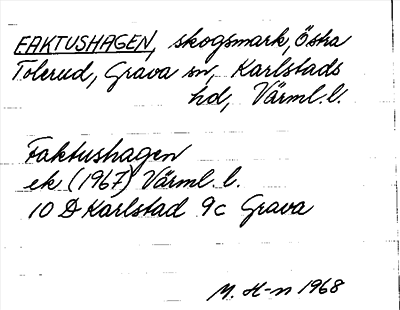 FAKTUSHAGEN, skogsmark, Östra
Tolerud, Grava sn, Karlstads
hd, Värml. l.
Faktushagen
ek (1967) Värml. l.
10 D Karlstad 9c Grava
M. H-n 1968